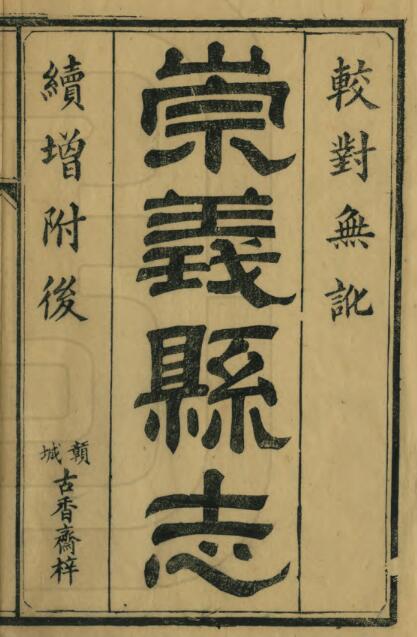 較對無訛
崇義縣志
續增附後
贛城
古香齋梓